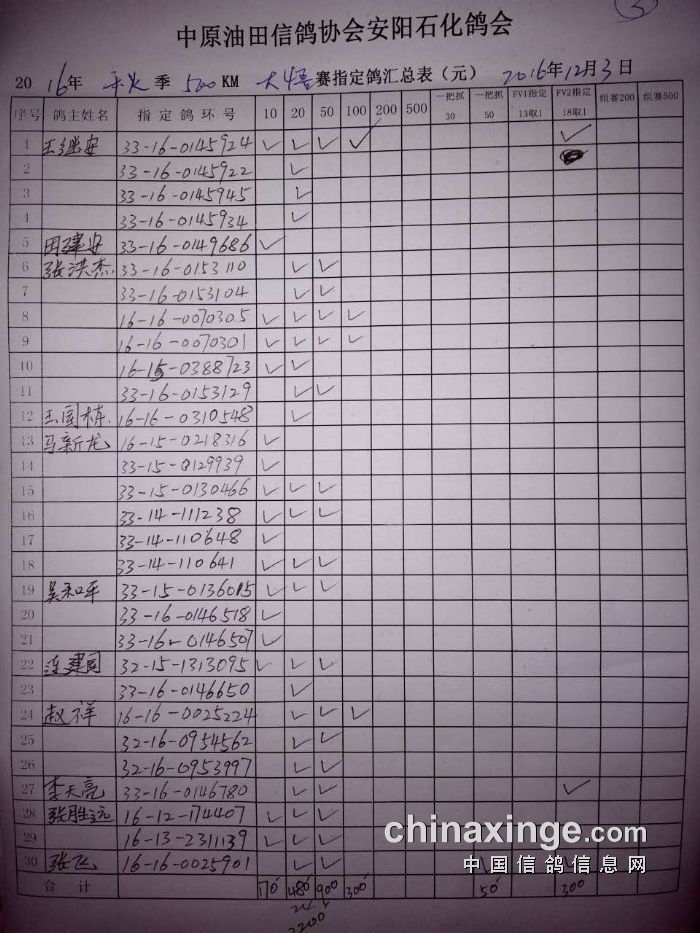 3
中原油田信鸽协会安阳石化鸽会
2016年 季 500KM 大悟赛指定鸽汇总表(元) 2016年12月3日
序号 鸽主姓名 指定鸽环号 10 20 50 100 200 500 一把抓30 一把抓50 FV1指定13取1 FV2指定18取1 组赛200 组赛500
1 王继安 33-16-0145924 ✓ ✓ ✓ ✓ ✓
2 33-16-0145922 ✓
3 33-16-0145945 ✓
4 33-16-0145934 ✓
5 田建安 33-16-0149686 ✓
6 张洪杰 33-16-0153110 ✓ ✓
7 33-16-0153104 ✓ ✓
8 16-16-0070305 ✓ ✓ ✓ ✓
9 16-16-0070301 ✓ ✓ ✓ ✓
10 16-15-0388723 ✓ ✓
11 33-16-0153129 ✓ ✓
12 王国栋 16-16-0310548 ✓
13 马新龙 16-15-0218316 ✓
14 33-15-0129939 ✓
15 33-15-0130466 ✓ ✓ ✓
16 33-14-111238 ✓ ✓ ✓
17 33-14-110648 ✓
18 33-14-110641 ✓ ✓ ✓
19 吴和平 33-15-0136015 ✓ ✓ ✓
20 33-16-0146518 ✓
21 33-16-0146507 ✓
22 连建国 32-15-1313095 ✓ ✓ ✓
23 33-16-0146650 ✓
24 赵祥 16-16-0025224 ✓ ✓ ✓
25 32-16-0954562 ✓ ✓
26 32-16-0953997 ✓ ✓
27 李天亮 33-16-0146780 ✓ ✓ ✓
28 张胜远 16-12-174407 ✓ ✓ ✓
29 16-13-2311139 ✓ ✓ ✓
30 张飞 16-16-0025901 ✓ ✓ ✓ ✓
合计 170 480 900 300 50 300
2200
chinaxinge.com
中国信鸽信息网